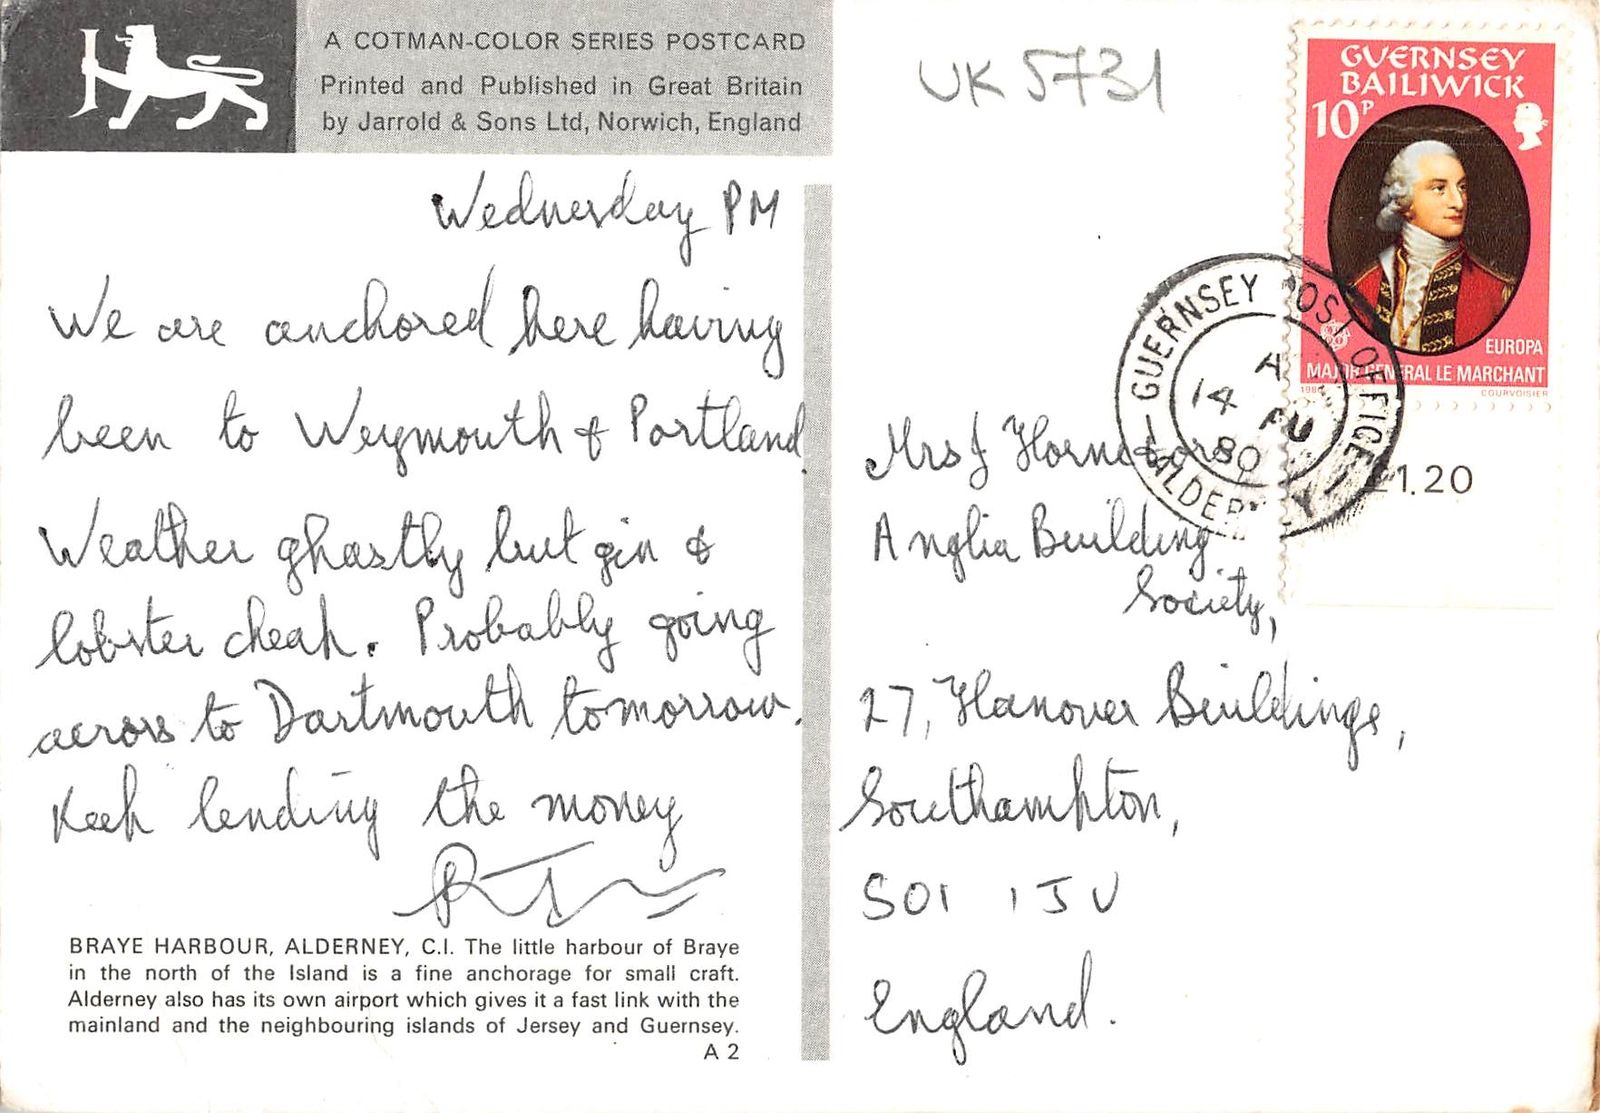 A COTMAN-COLOR SERIES POSTCARD
Printed and Published in Great Britain
by Jarrold & Sons Ltd, Norwich, England
UK 5731
GUERNSEY
BAILIWICK
10P
EUROPA
MAJOR GENERAL LE MARCHANT
COURVOISIER
GUERNSEY POST OFFICE
ALDERNEY
A
14 AU
80
£1.20
Wednesday PM
We are anchored here having
been to Weymouth & Portland.
Weather ghastly but gin &
lobster cheap. Probably going
across to Dartmouth tomorrow.
Keep lending the money
Mrs J
Anglia Building
Society,
27, Hanover Buildings,
Southampton,
SO1 1JU
England.
BRAYE HARBOUR, ALDERNEY, C.I. The little harbour of Braye
in the north of the Island is a fine anchorage for small craft.
Alderney also has its own airport which gives it a fast link with the
mainland and the neighbouring islands of Jersey and Guernsey.
A 2